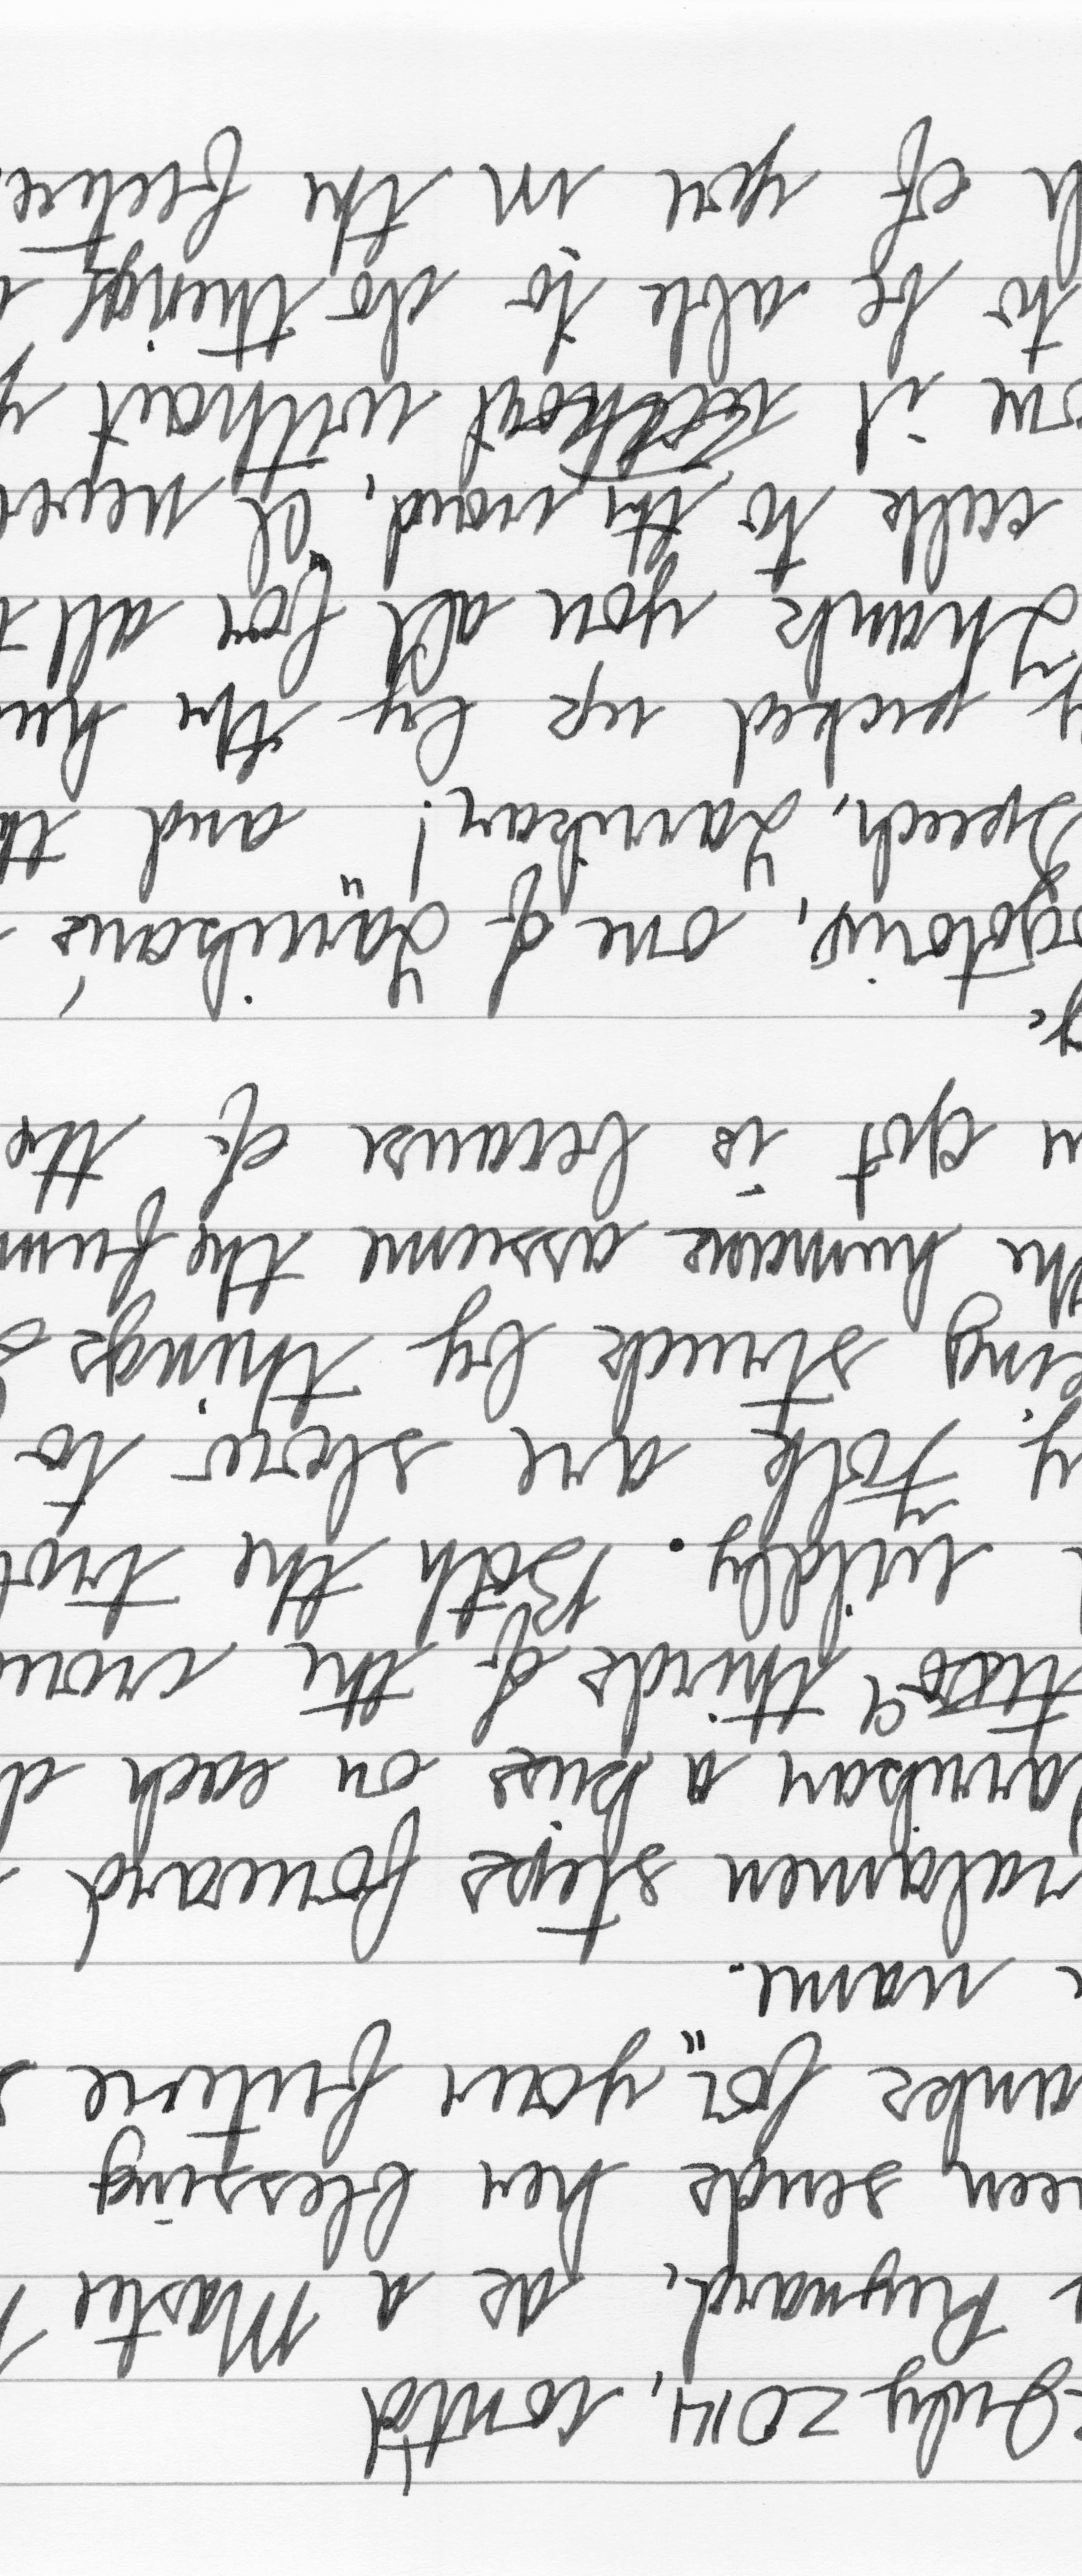 July 2014, contd
Reynard, as a Master
een sends her blessing
anks for" your future
name.
ralamen steps forward
arrikan a kiss on each d
two thirds of the crow
wildly. Both the trol
y Folk are slow to
eing struck by things
the humans assume the
n got is because of the
y.
one of "Yarrikan's
Speech, Yarrikan! and th
y picked up by the hu
"Thank you all for all
calls to the crowd, "I never
one it without without y
to be able to do things
ll of you in the future